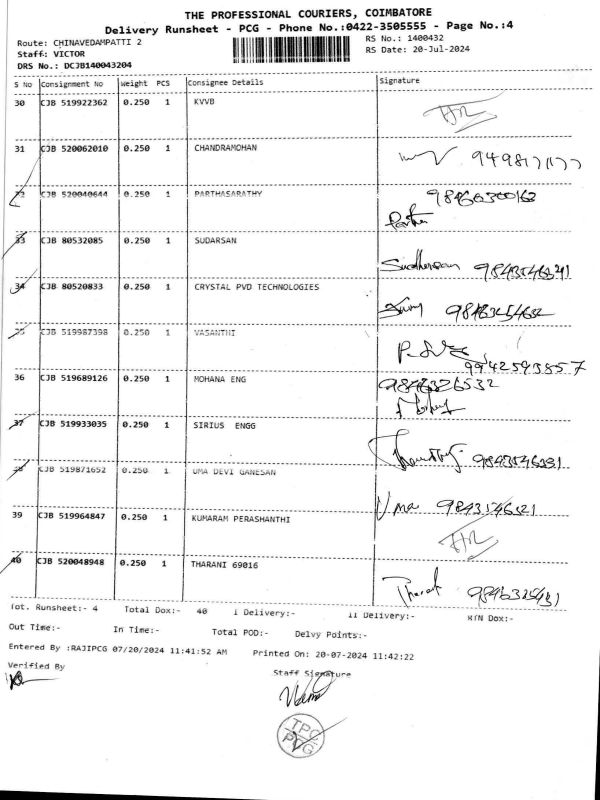 THE PROFESSIONAL COURIERS, COIMBATORE
Delivery Runsheet - PCG - Phone No.:0422-3505555 - Page No.:4
Route: CHINAVEDAMPATTI 2
RS No.: 1400432
Staff: VICTOR
RS Date: 20-Jul-2024
DRS No.: DCJB140043204
S No Consignment No Weight PCS Consignee Details Signature
30 CJB 519922362 0.250 1 KVVB
31 CJB 520062010 0.250 1 CHANDRAMOHAN
32 CJB 520040644 0.250 1 PARTHASARATHY
33 CJB 80532085 0.250 1 SUDARSAN
34 CJB 80520833 0.250 1 CRYSTAL PVD TECHNOLOGIES
35 CJB 519987398 0.250 1 VASANTHI
9942593857
36 CJB 519689126 0.250 1 MOHANA ENG
9846326532
37 CJB 519933035 0.250 1 SIRIUS ENGG
38 CJB 519871652 0.250 1 UMA DEVI GANESAN
Uma
39 CJB 519964847 0.250 1 KUMARAM PERASHANTHI
40 CJB 520048948 0.250 1 THARANI 69016
Tot. Runsheet:- 4 Total Dox:- 40 I Delivery:- II Delivery:- R/N Dox:-
Out Time:- In Time:- Total POD:- Delvy Points:-
Entered By :RAJIPCG 07/20/2024 11:41:52 AM Printed On: 20-07-2024 11:42:22
Verified By
Staff Signature
TPC
PCG